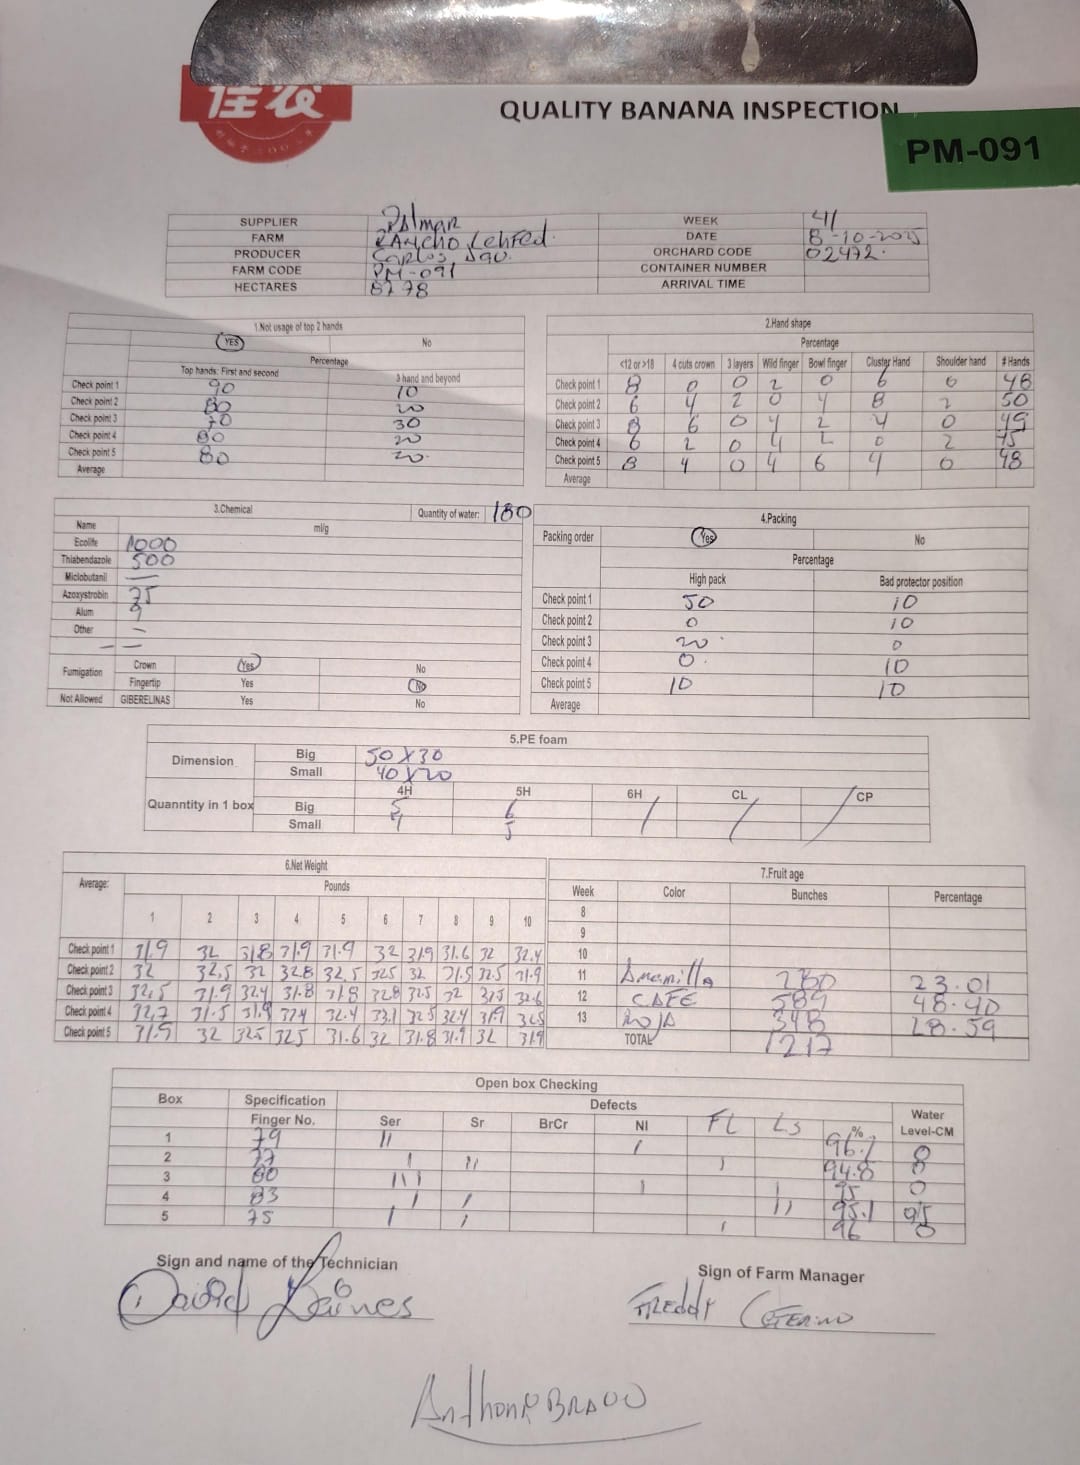 佳农
QUALITY BANANA INSPECTION
PM-091
SUPPLIER Palmar WEEK 41
FARM RANCHO Lehfed. DATE 8-10-2025
PRODUCER Carlos ORCHARD CODE 02472.
FARM CODE PM-091 CONTAINER NUMBER
HECTARES 87.78 ARRIVAL TIME
1.Not usage of top 2 hands
YES No
Percentage
Top hands: First and second 3 hand and beyond
Check point 1 90 10
Check point 2 80 20
Check point 3 70 30
Check point 4 80 20
Check point 5 80 20.
Average
2.Hand shape
Percentage
<12 or >18 4 cuts crown 3 layers Wild finger Bowl finger Cluster Hand Shoulder hand # Hands
Check point 1 8 0 0 2 0 6 0 48
Check point 2 6 4 2 0 4 8 2 50
Check point 3 8 6 0 4 2 4 0 49
Check point 4 6 2 0 4 2 0 2 45
Check point 5 8 4 0 4 6 4 0 48
Average
3.Chemical Quantity of water: 180
Name ml/g
Ecolife 1000
Thiabendazole 500
Miclobutanil —
Azoxystrobin 75
Alum 9
Other –
Fumigation Crown Yes No
Fingertip Yes No
Not Allowed GIBERELINAS Yes No
4.Packing
Packing order Yes No
Percentage
High pack Bad protector position
Check point 1 50 10
Check point 2 0 10
Check point 3 20 0
Check point 4 0. 10
Check point 5 10 10
Average
5.PE foam
Dimension Big 50X30
Small 40X20
Quanntity in 1 box 4H 5H 6H CL CP
Big 5 6 / / /
Small 4 5
6.Net Weight
Average: Pounds
1 2 3 4 5 6 7 8 9 10
Check point 1 31.9 32 31.8 31.9 31.9 32 31.9 31.6 32 32.4
Check point 2 32 32.5 32 32.8 32.5 32.5 32 31.5 32.5 31.9
Check point 3 32.5 31.9 32.4 31.8 31.8 32.8 32.5 32 31.5 32.6
Check point 4 32.7 31.5 31.9 32.4 32.4 33.1 32.5 32.4 31.9 32.5
Check point 5 31.5 32 32.5 32.5 31.6 32 31.8 31.9 32 31.9
7.Fruit age
Week Color Bunches Percentage
8
9
10
11 Amarilla 280 23.01
12 CAFE 589 48.40
13 ROJA 348 28.59
TOTAL 1217
Open box Checking
Box Specification Defects Water
Finger No. Ser Sr BrCr NI FL Ls % Level-CM
1 79 II I 96.1 0
2 77 I II I 94.8 0
3 80 III I I 95 0
4 83 I I II 95.1 0.5
5 75 I I I 96 0
Sign and name of the Technician
David Gaines
Sign of Farm Manager
FREDDY CEFERINO
Anthony BRAVO